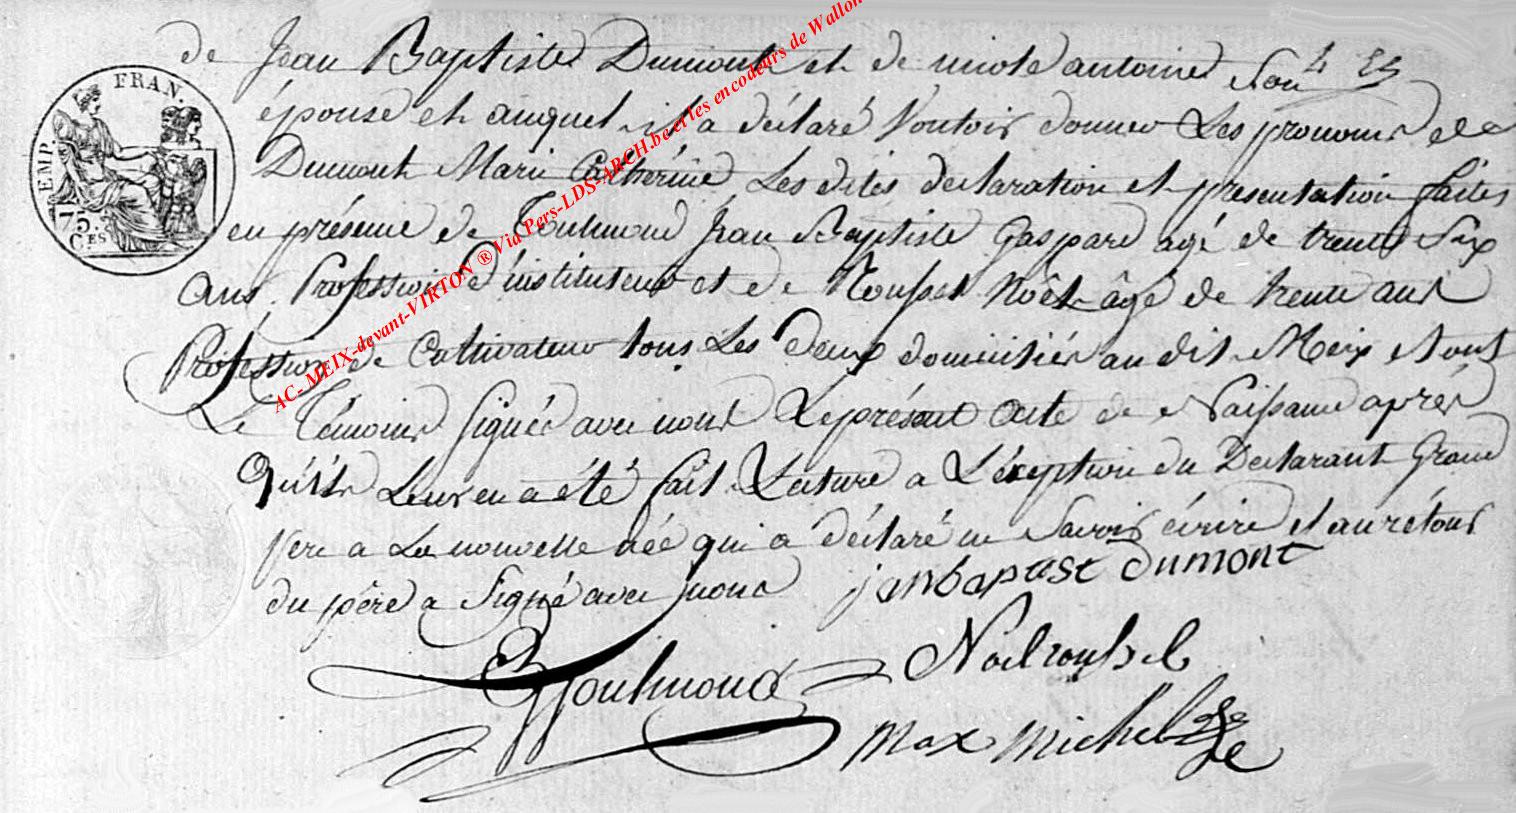 de Jean Baptiste Dumont et de nicole antoine Son
épouse et auquel il a déclaré Vouloir donner Les prenoms de
Dumont Marie Catherine, Les dites declaration et presentation faites
en présence de Toulmond Jean Baptiste Gaspard agé de trente Six
ans, Profession d'instituteur et de Roussel Noël âgé de trente ans
Profession de Cultivateur tous Les deux domiciliés au dit Meix et ont
Le Témoins Signés avec nous Le présent acte de Naissance après
Qu'il Leur en a été fait Lecture a L'éxeption du Declarant Grand
pere a La nouvelle née qui a déclaré ne Savoir écrire et au rétour
du père a Signé avec nous janbapust dumont
Noel roussel
Toulmond
max michel
EMP. FRAN.
75 CES
AC- MEIX-devant-VIRTON ® Via Pers-LDS-ARCH.be et les encodeurs de Wallon